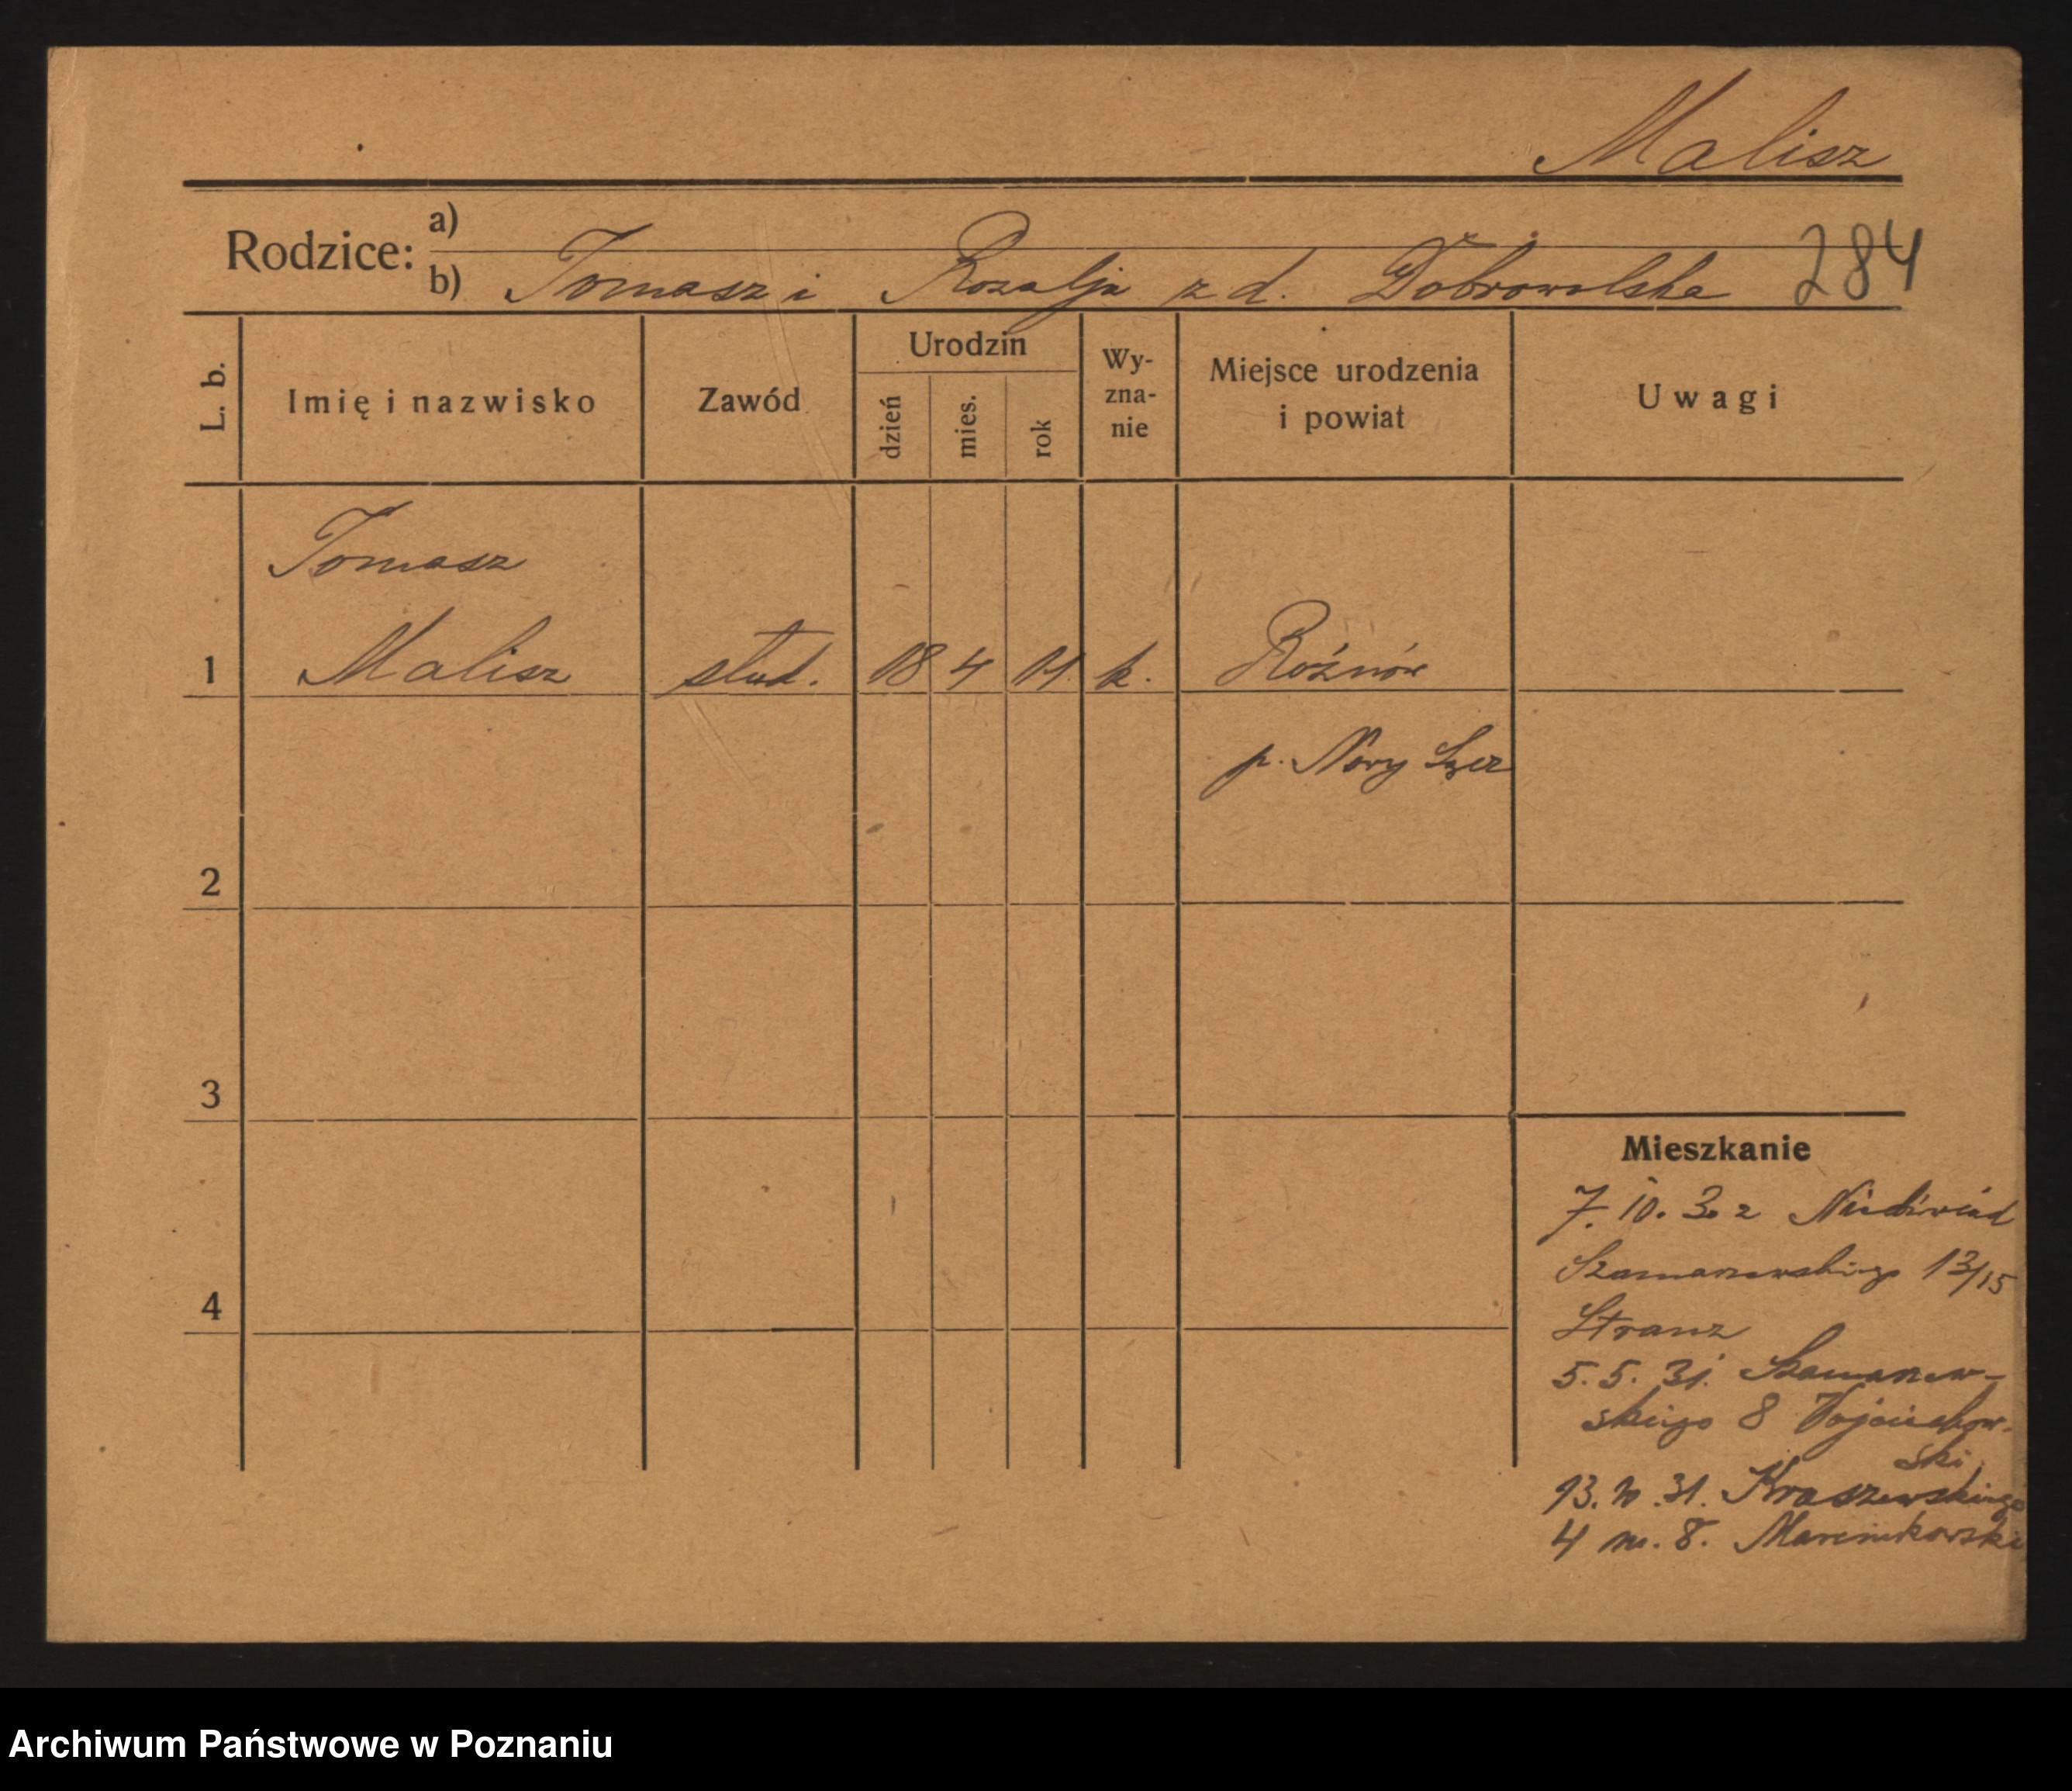 Malisz
Rodzice:
a)
b) Tomasz i Rozalja z d. Dobrowolska 284
L. b.
Imię i nazwisko
Zawód
Urodzin
dzień
mies.
rok
Wy-
zna-
nie
Miejsce urodzenia
i powiat
Uwagi
Tomasz
1 Malisz stud. 18 4 11. k. Rożnów
p. Nowy Sącz
2
3
4
Mieszkanie
7. 10. 32
Szamarzewskiego 13/15
Stranz
5. 5. 31. Szamarzew-
skiego 8 Wojciechow-
ski
13. 10. 31. Kraszewskiego
4 m. 8. Marcinkowski
Archiwum Państwowe w Poznaniu